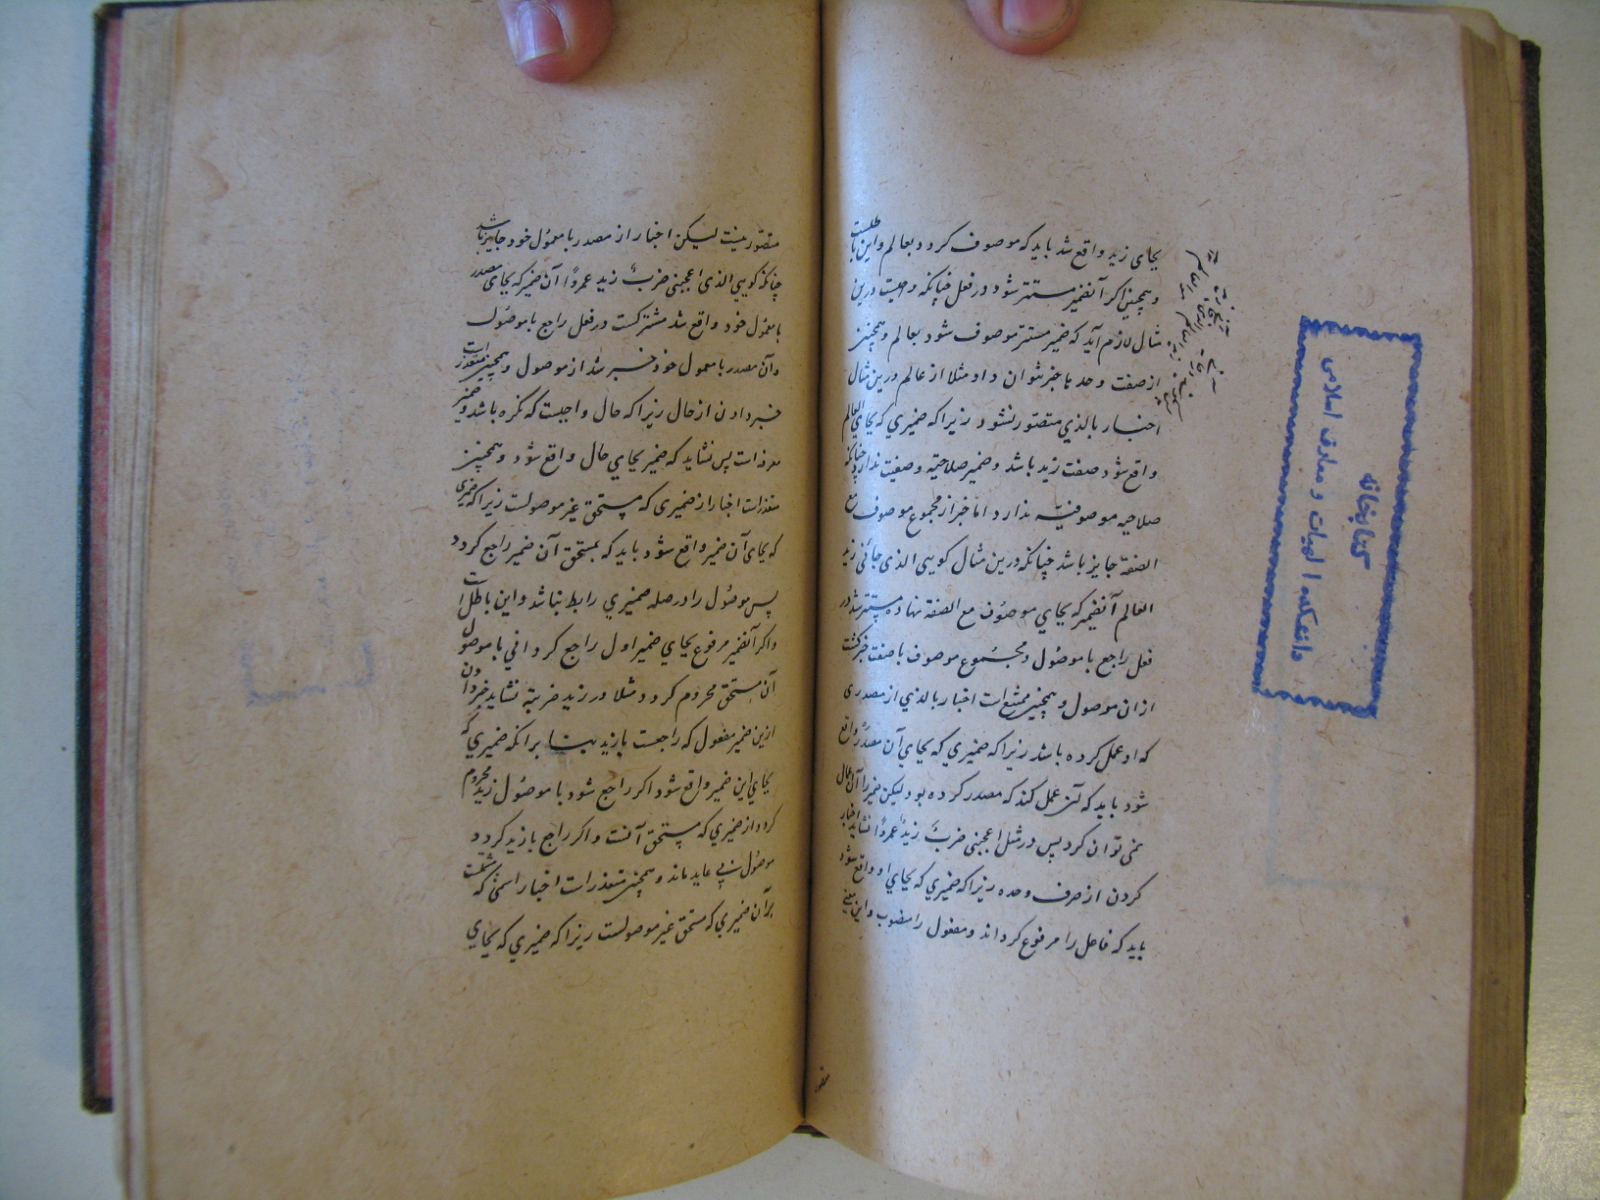 بجای زید واقع شد باید که موصوف گردد بعالم و این باطلست
و همچنین اگر آنضمیر مستتر شود در فعل چنانکه واجبست درین
مثال لازم آید که ضمیر مستتر موصوف شود بعالم و همچنین
از صفت وحدها خبر نتوان داد مثلا از عالم درین مثال
اخبار بالذی متصور نشود زیرا که ضمیری که بجای العالم
واقع شود صفت زید باشد و ضمیر صلاحیت وصفیت ندارد چنانکه
صلاحیه موصوفیة ندارد اما خبر از مجموع موصوف مع
الصفة جایز باشد چنانکه درین مثال کویی الذی جائنی زید
العالم آنضمیر که بجای موصوف مع الصفة نهاده مستتر شد در
فعل راجع با موصول و مجموع موصوف با صفت خبر کشت
از ان موصول و همچنین ممتنع است اخبار بالذی از مصدری
که او عمل کرده باشد زیرا که ضمیری که بجای آن مصدر واقع
شود باید که آن عمل کند که مصدر کرده بود لیکن ضمیر را آن اعمال
نمی توان کرد پس در مثل اعجبنی ضربُ زیدٍ عمروًا نشاید اخبار
کردن از ضرب وحده زیرا که ضمیری که بجای او واقع شود
باید که فاعل را مرفوع کرداند و مفعول را منصوب و این معنی
متصور نیست لیکن اخبار از مصدر با معمول خود جایز باشد
چنانکه کویی الذی اعجبنی ضربُ زید عمروًا آن ضمیر که بجای مصدر
با معمول خود واقع شد مستترست در فعل راجع با موصول
و آن مصدر با معمول خود خبر شد از موصول و همچنین متعذر است
خبر دادن از حال زیرا که حال واجبست که نکره باشد و ضمیر
معرفه است پس نشاید که ضمیر بجای حال واقع شود و همچنین
متعذر است اخبار از ضمیری که مستحق غیر موصولست زیرا که ضمیری
که بجای آن ضمیر واقع شود باید که بمستحق آن ضمیر راجع کردد
پس موصول را در صله ضمیری رابط نباشد و این باطل است
و اگر آنضمیر مرفوع بجای ضمیر اول راجع کردانی با موصول
آن مستحق محروم کردد مثلا در زید ضربته نشاید خبر دادن
ازین ضمیر مفعول که راجعست با زید بنا برانکه ضمیری که
بجای این ضمیر واقع شود اکر راجع شود با موصول زید محروم
کردد از ضمیری که مستحق آنست و اکر راجع با زید کردد
موصول بی عاید ماند و همچنین متعذر است اخبار اسمی که مشتملست
بر آن ضمیری که مستحق غیر موصولست زیرا که ضمیری که بجای
متصور
کتابخانه
دانشکده الهیات و معارف اسلامی